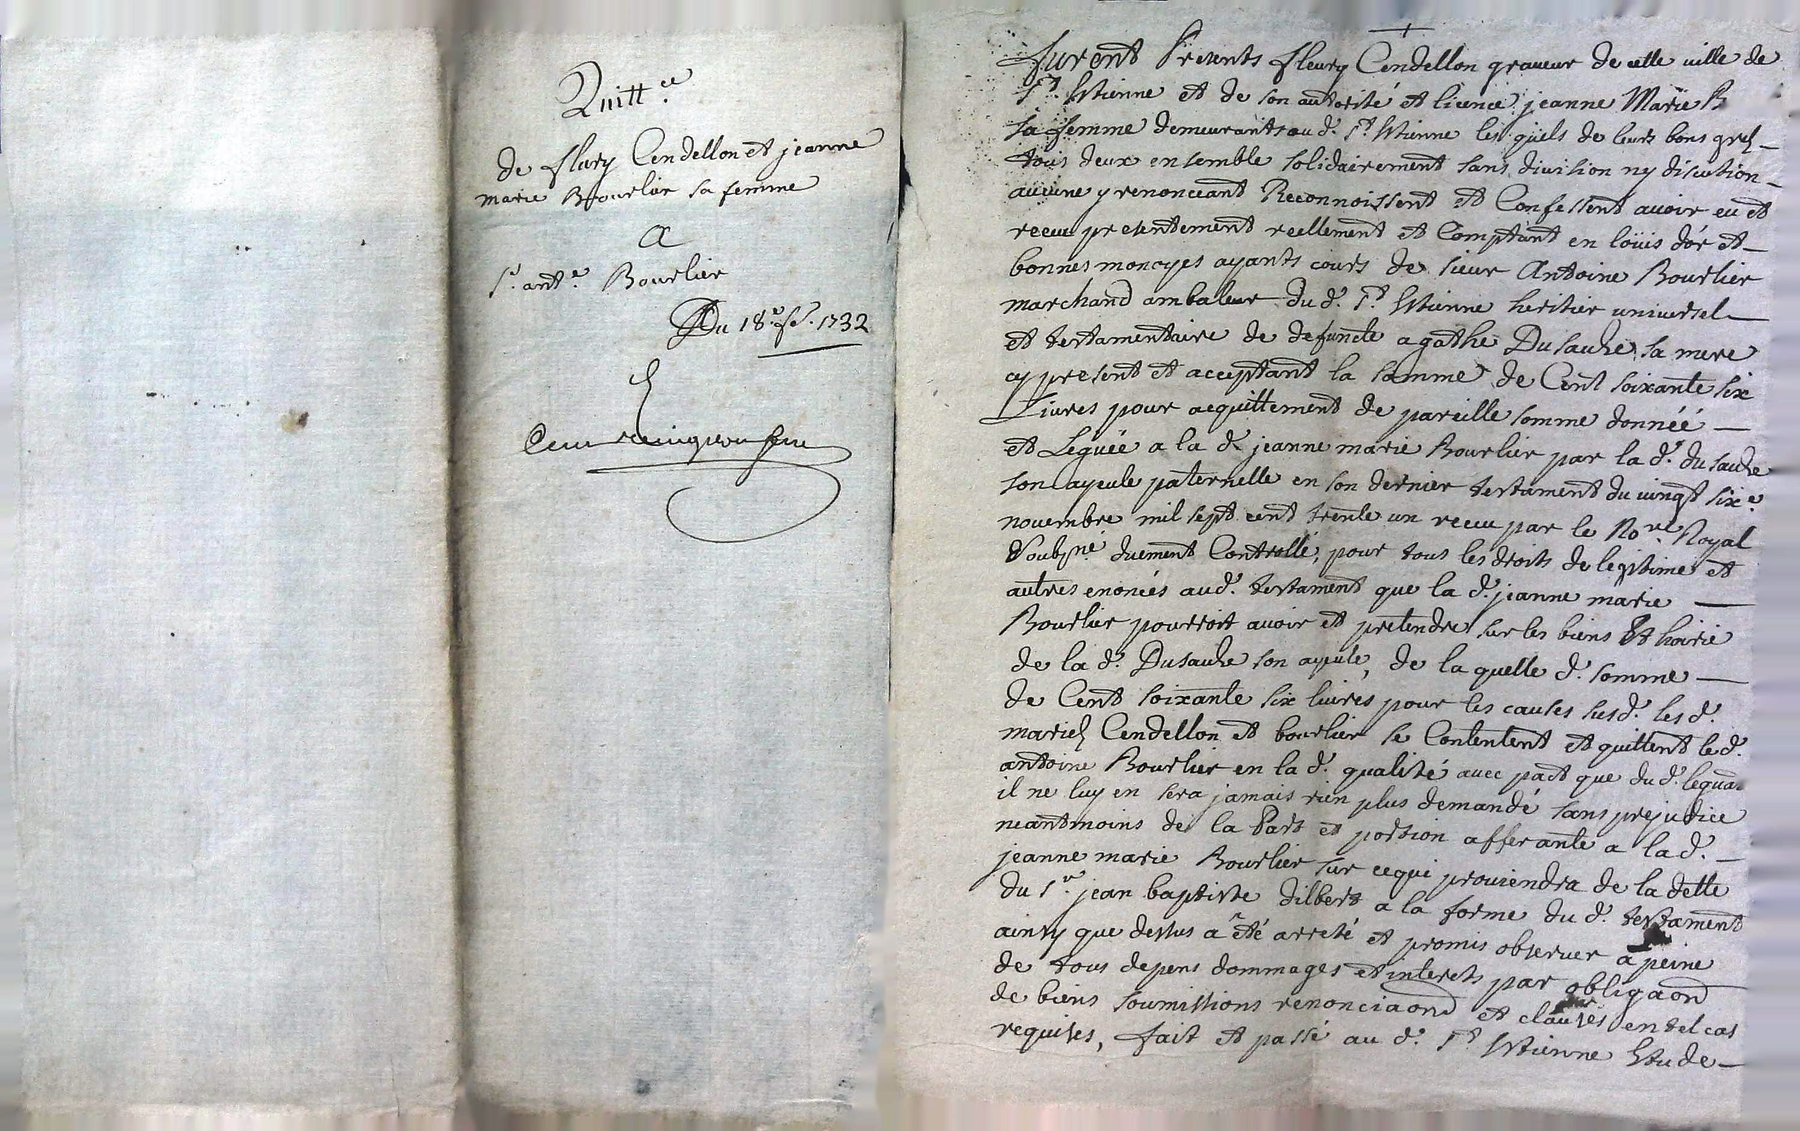 Quitt.ce
de fleury Cendellon et jeanne
marie Bourlier sa femme
a
sr. ant.e Bourlier
Du 18.e fe. 1732
furent Presents fleury Cendellon graueur de cette uille de
st. Estienne et de son autorité et licence jeanne Marie B
sa femme demeurants au d. st. Estienne les quels de leurs bons gres
tous deux ensemble solidairement sans diuision ny discution
aucune y renonceant Reconnoissent et Confessent auoir eu et
receu presentement reellement et Comptant en loüis d'or et
bonnes monoyes ayants cours de sieur Antoine Bourlier
marchand ambaleur du d. st. Estienne heritier uniuersel
et testamentaire de defuncte agathe Dusauze sa mere
cy present et acceptant la somme de Cent soixante six
Liures pour acquittement de pareille somme donnéé
et Leguée a la d. jeanne marie Bourlier par la d. du sauze
son ayeule paternelle en son dernier testament du uingt six.e
nouembre mil sept cent trente un receu par le No.re Royal
duement Controllé, pour tous les droits de legitime et
autres enoncés aud. testament que la d. jeanne marie
Bourlier pourroit auoir et pretendre sur les biens et hoirie
de la d. Dusauze son ayeule, de la quelle d. somme
de Cent soixante six liures pour les causes susd. les d.
mariés Cendellon et bourlier se Contentent et quittent le d.
antoine Bourlier en la d. qualité auec pact que du d. legat
il ne luy en sera jamais rien plus demandé sans prejudice
neantmoins de la Part et portion afferante a la d.
jeanne marie Bourlier sur cequi prouiendra de la dette
du sr. jean baptiste dilbert a la forme du d. testament
ainsy que dessus a été arreté et promis obseruer a peine
de tous depens dommages et interets par obligaon
de biens soumissions renonciaons et clauses en tel cas
requises, fait et passé au d. st. Estienne Etude